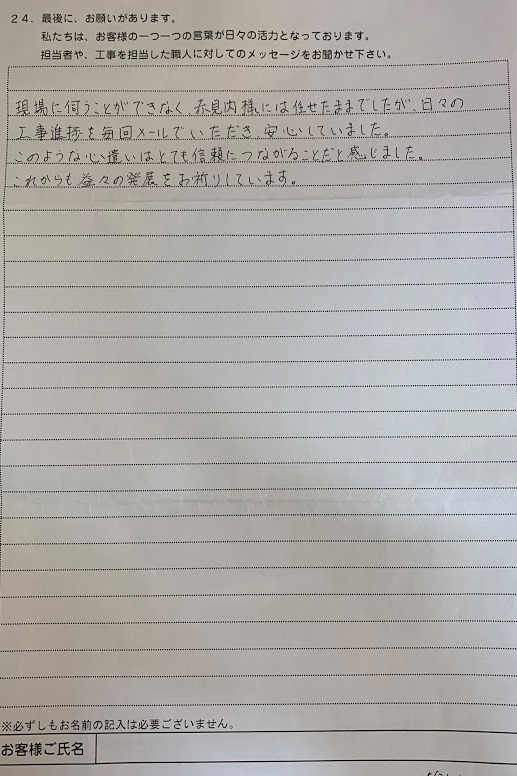 ２４．最後に、お願いがあります。
私たちは、お客様の一つ一つの言葉が日々の活力となっております。
担当者や、工事を担当した職人に対してのメッセージをお聞かせ下さい。
現場に伺うことができなく、赤見内様には任せたままでしたが、日々の
工事進捗を毎回メールでいただき 安心していました。
このような心遣いはとても信頼につながることだと感じました。
これからも益々の発展をお祈りしています。
※必ずしもお名前の記入は必要ございません。
お客様ご氏名